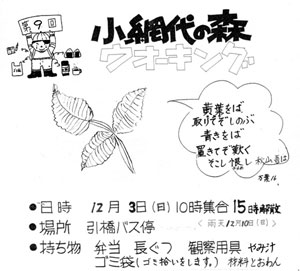 第9回
小網代の森
ウオーキング
黄葉をば
取りてぞしのぶ
青きをば
置きてぞ歎く
そこし恨し 秋山吾は
万葉16
●日時 12月3日(日)10時集合 15時解散
●場所 引橋バス停 〈雨天12月10日(日)〉
●持ち物 弁当 長ぐつ 観察用具 やみ汁
ゴミ袋(ゴミ拾いをします。) 材料とおわん